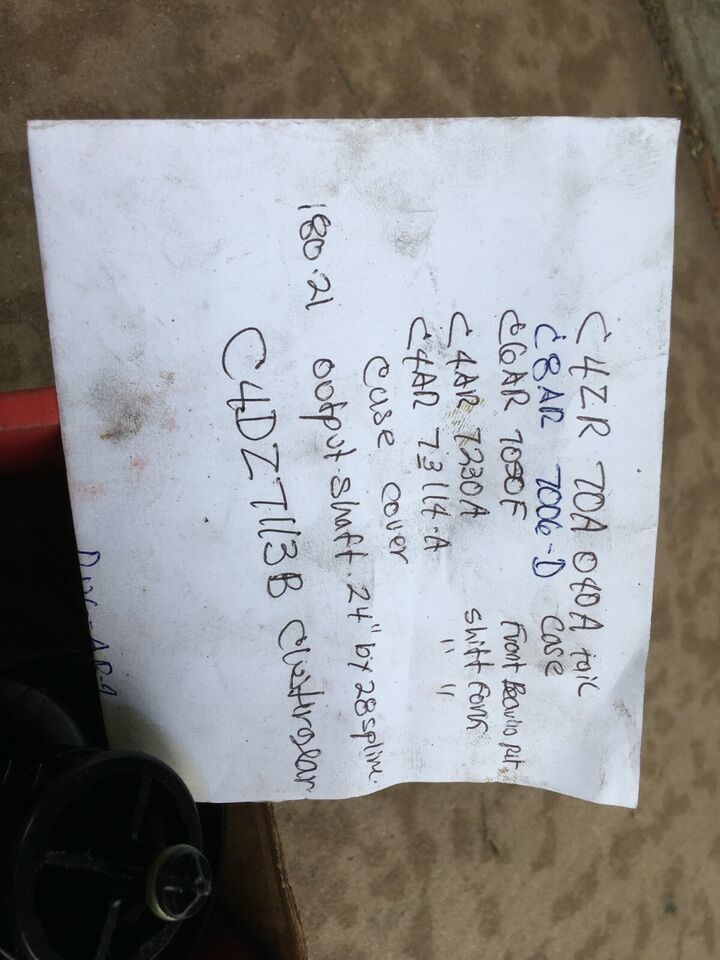 C4ZR 70A 040A tail
C8AR 7006-D Case
C6AR 7050F Front
C4AR 7230A shift Fork
C4AR 73114-A " "
Case cover
180.21 output shaft. 24" by 28 spline.
C4DZ 7113B